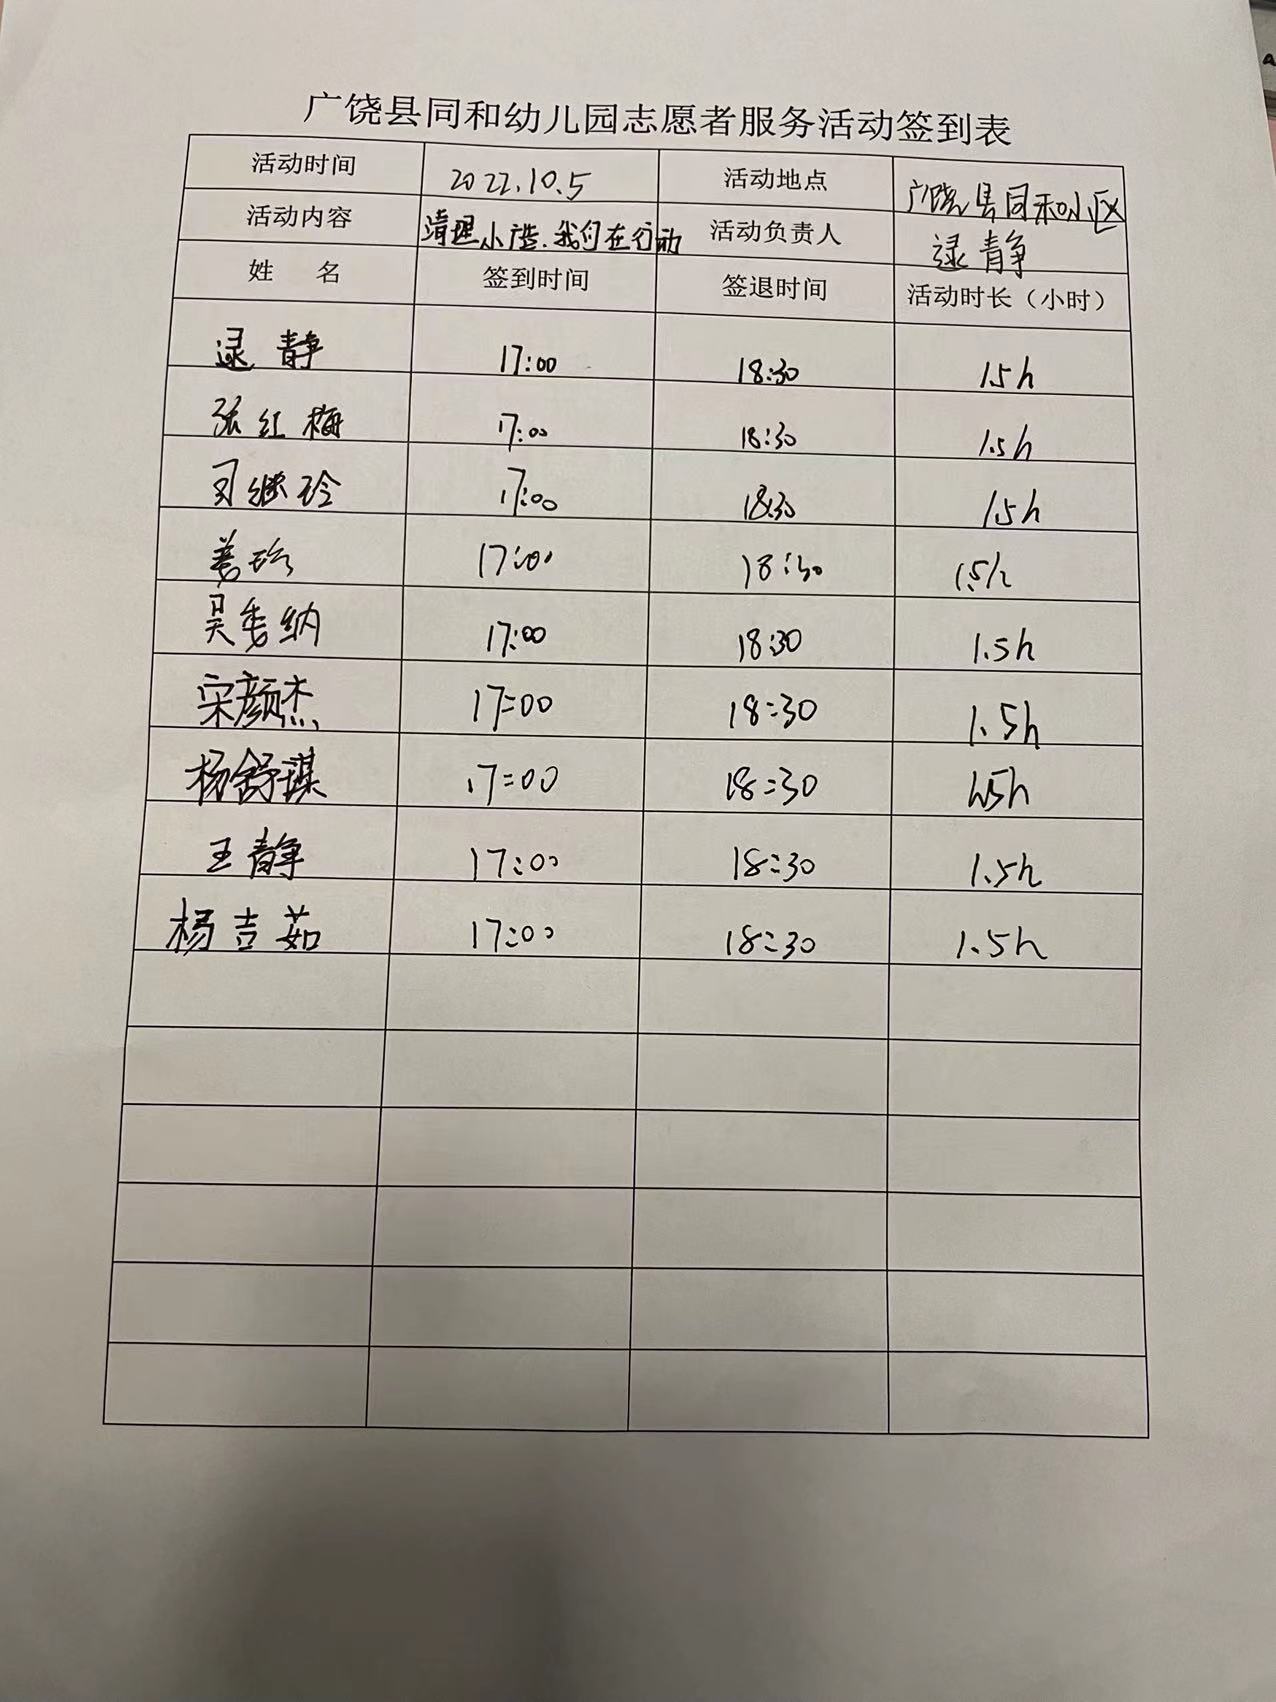 广饶县同和幼儿园志愿者服务活动签到表
活动时间 2022.10.5 活动地点 广饶县同和小区
活动内容 清理小广告.我们在行动 活动负责人 逯静
姓 名 签到时间 签退时间 活动时长（小时）
逯静 17:00 18:30 1.5h
张红梅 17:00 18:30 1.5h
司继玲 17:00 18:30 1.5h
17:00 18:30 1.5h
吴秀纳 17:00 18:30 1.5h
宋颜杰 17:00 18:30 1.5h
杨舒琪 17:00 18:30 1.5h
王静 17:00 18:30 1.5h
杨吉茹 17:00 18:30 1.5h